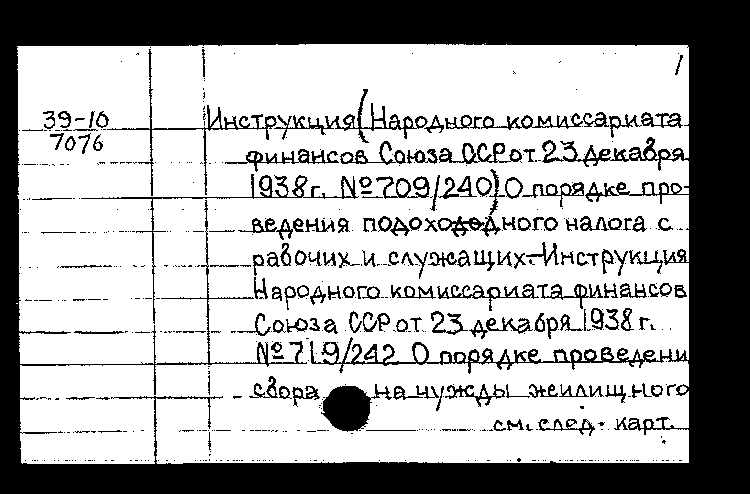 1
39-10
7076
Инструкция (Народного комиссариата
финансов Союза ССР от 23 декабря
1938г. №709/240) О порядке про-
ведения подоходного налога с
рабочих и служащих.-Инструкция
Народного комиссариата финансов
Союза ССР от 23 декабря 1938 г.
№719/242 О порядке проведени
сбора на нужды жилищного
см. след. карт.